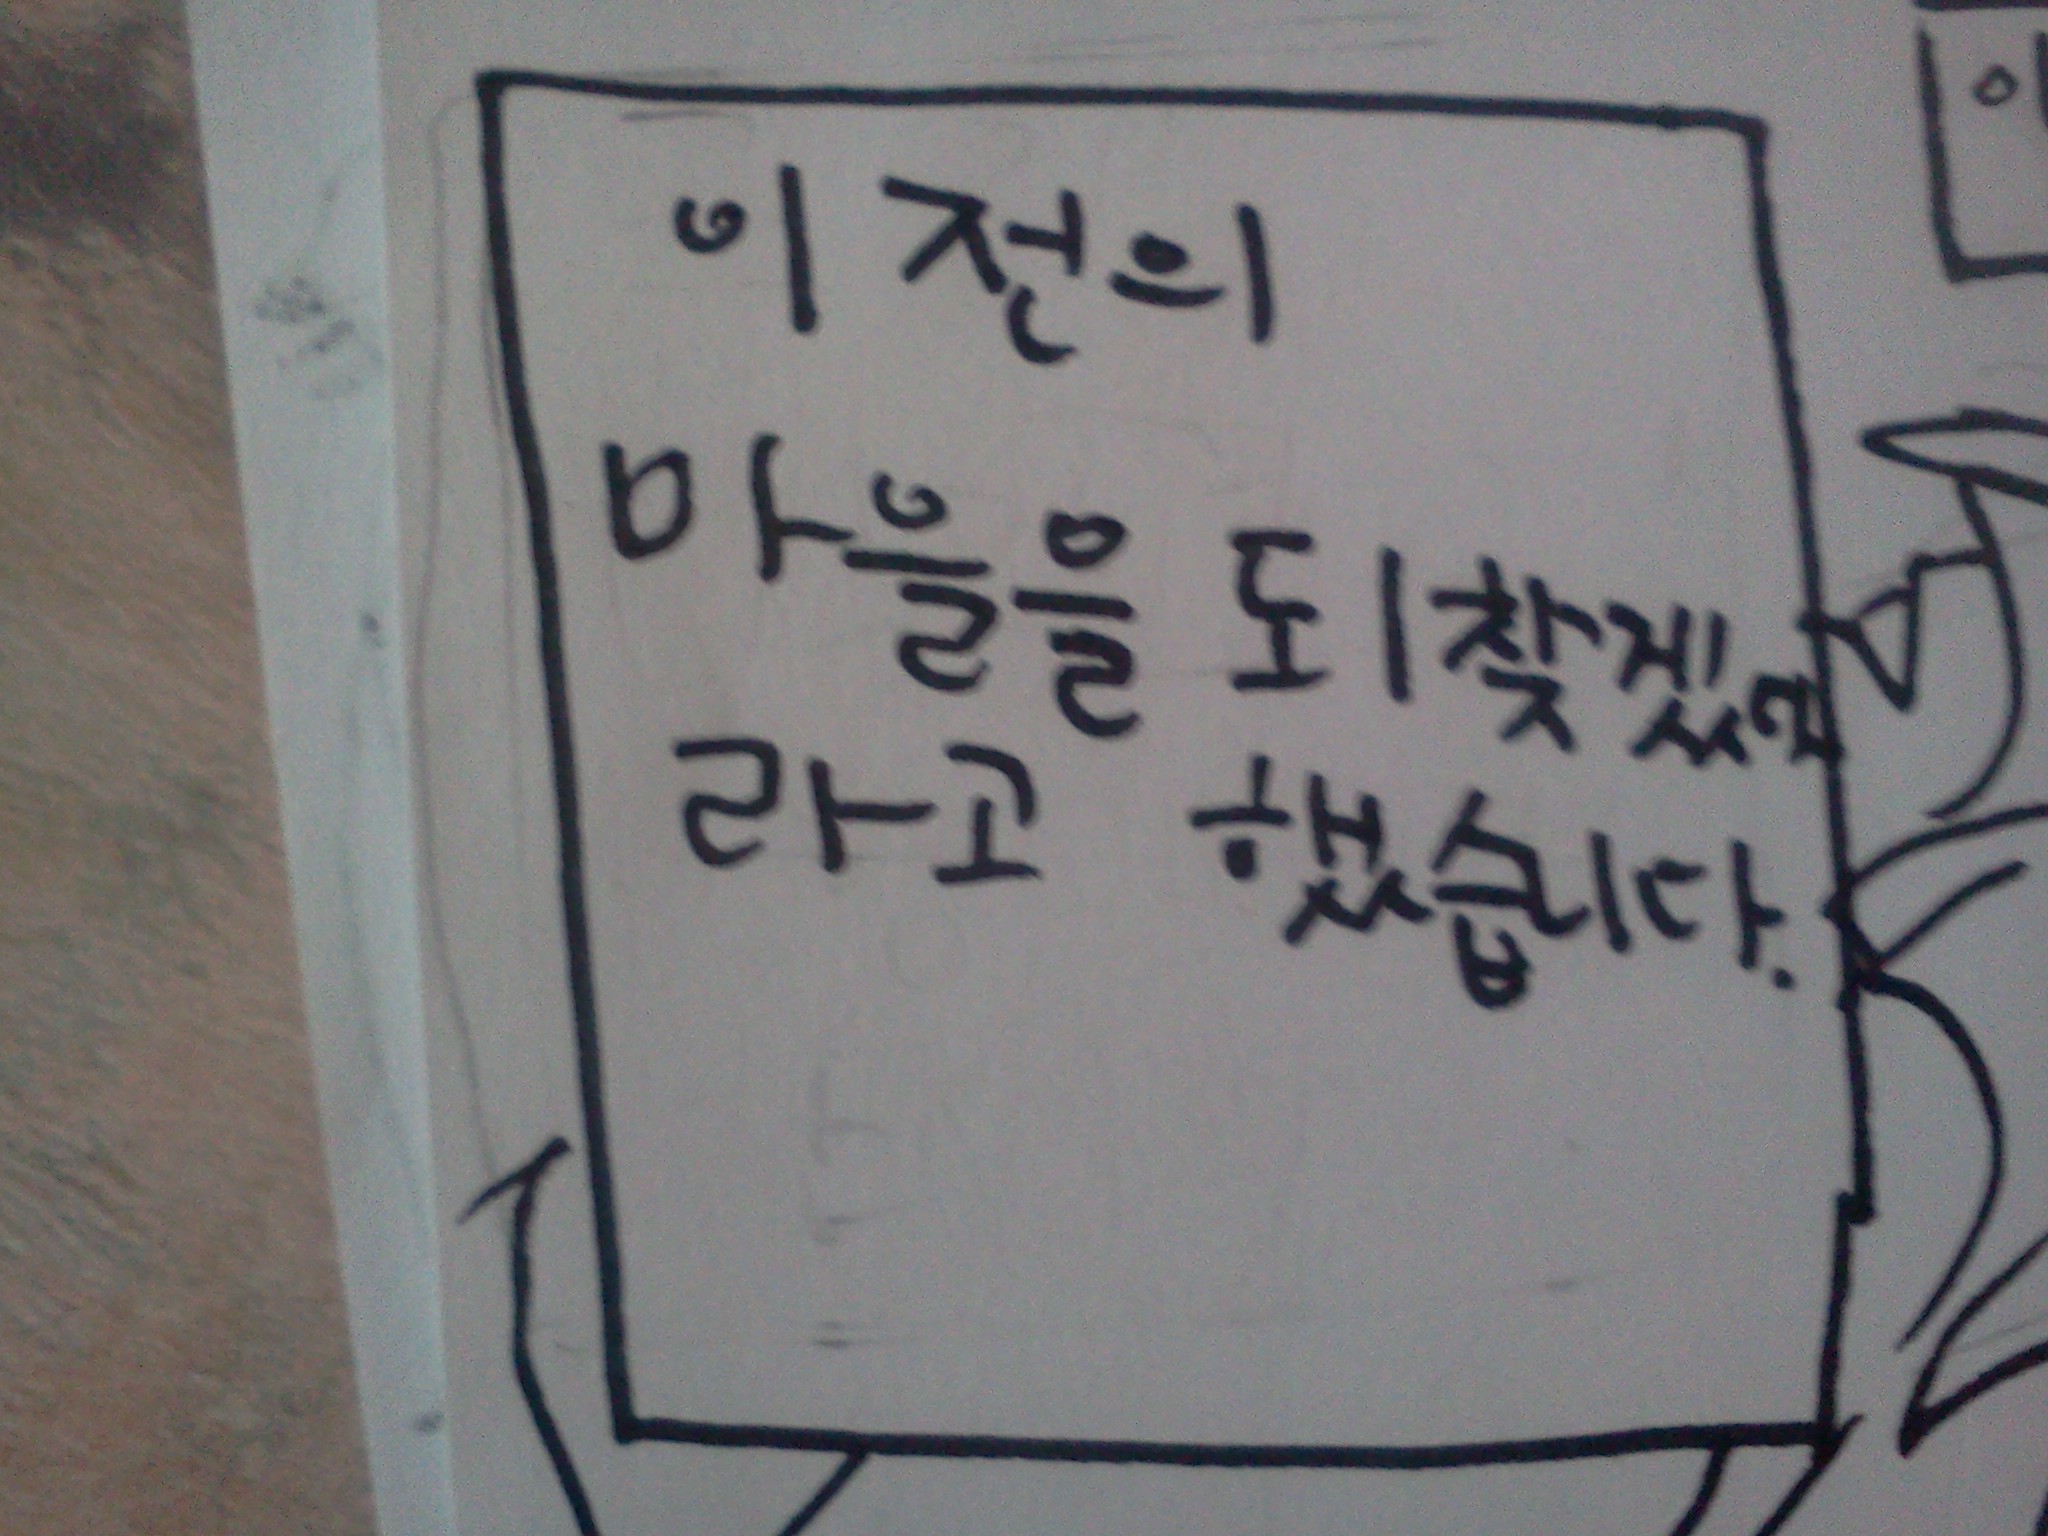 이전의
마을을 되찾겠다
라고 했습니다.